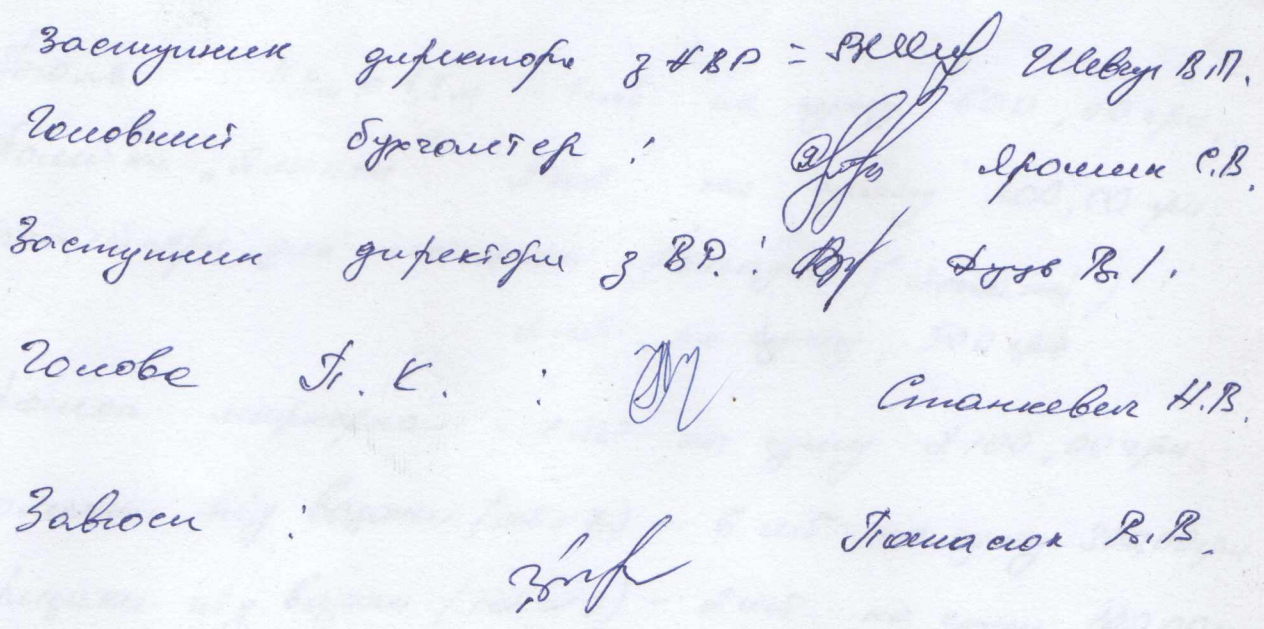 Заступник директора з НВР = Шевчук В.П.
Головний бухгалтер : Ярошик С.В.
Заступник директора з ВР : В. І.
Голова П. К. : Станкевич Н.В.
Завгосп : Панасюк В.В.